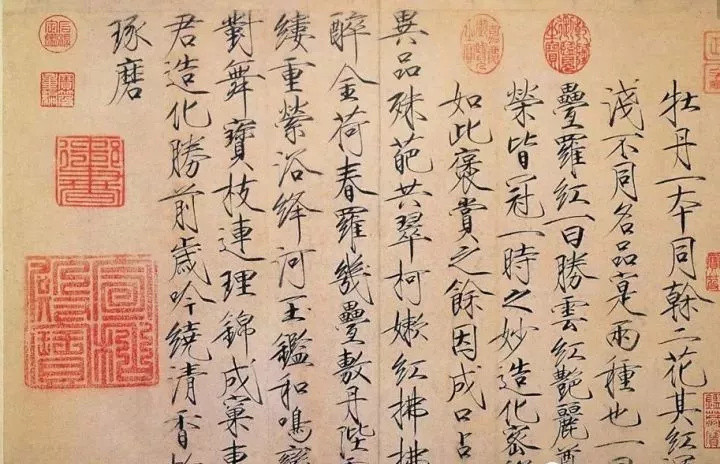 牡丹一本同幹二花其紅
淺不同名品寔兩種也一
疊羅紅一曰勝雲紅艷麗尊
榮皆冠一時之妙造化密
如此褒賞之餘因成口占
異品殊葩共翠柯嫩紅拂拂
醉金荷春羅幾疊敷丹陛
縷重縈浴絳河玉鑑和鳴鸞
對舞寶枝連理錦成窠東
君造化勝前歲吟繞清香
琢磨